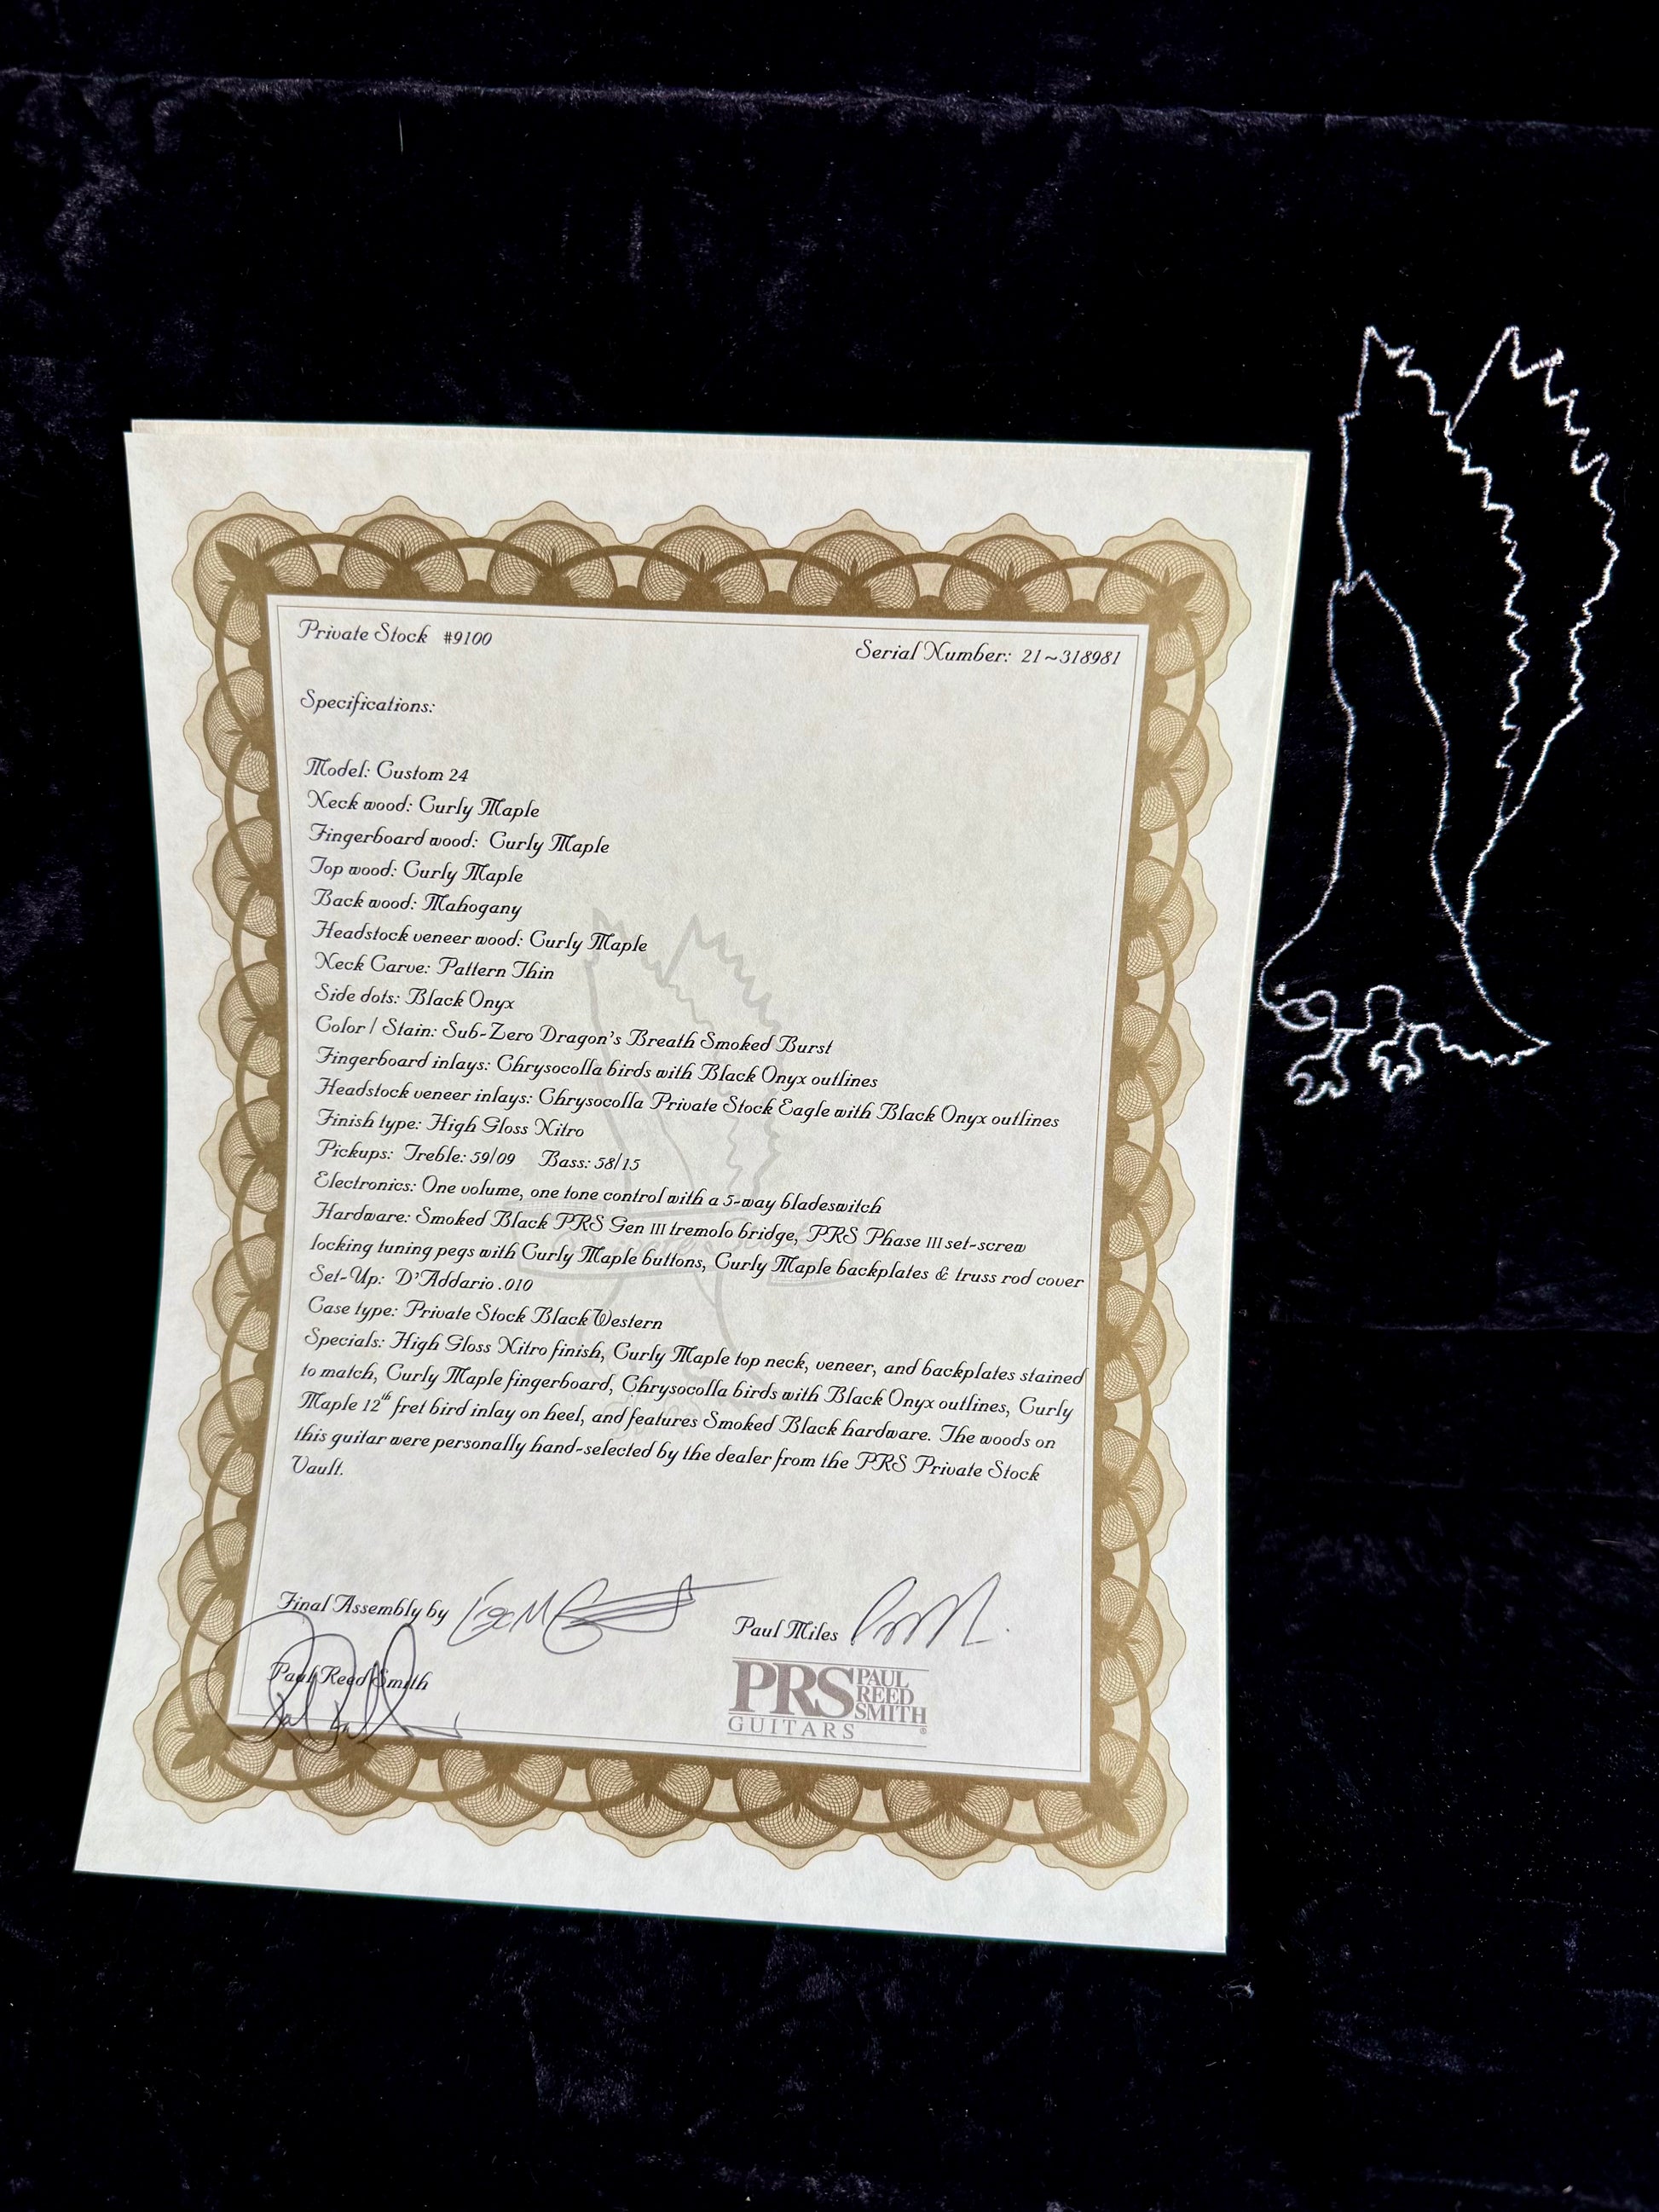 Private Stock #9100
Serial Number: 21~318981
Specifications:
Model: Custom 24
Neck wood: Curly Maple
Fingerboard wood: Curly Maple
Top wood: Curly Maple
Back wood: Mahogany
Headstock veneer wood: Curly Maple
Neck Carve: Pattern Thin
Side dots: Black Onyx
Color / Stain: Sub-Zero Dragon's Breath Smoked Burst
Fingerboard inlays: Chrysocolla birds with Black Onyx outlines
Headstock veneer inlays: Chrysocolla Private Stock Eagle with Black Onyx outlines
Finish type: High Gloss Nitro
Pickups: Treble: 59/09 Bass: 58/15
Electronics: One volume, one tone control with a 5-way bladeswitch
Hardware: Smoked Black PRS Gen III tremolo bridge, PRS Phase III set-screw
locking tuning pegs with Curly Maple buttons, Curly Maple backplates & truss rod cover
Set-Up: D'Addario .010
Case type: Private Stock Black Western
Specials: High Gloss Nitro finish, Curly Maple top neck, veneer, and backplates stained
to match, Curly Maple fingerboard, Chrysocolla birds with Black Onyx outlines, Curly
Maple 12th fret bird inlay on heel, and features Smoked Black hardware. The woods on
this guitar were personally hand-selected by the dealer from the PRS Private Stock
Vault.
Final Assembly by
Paul Miles
Paul Reed Smith
PRS PAUL
REED
SMITH
GUITARS ®